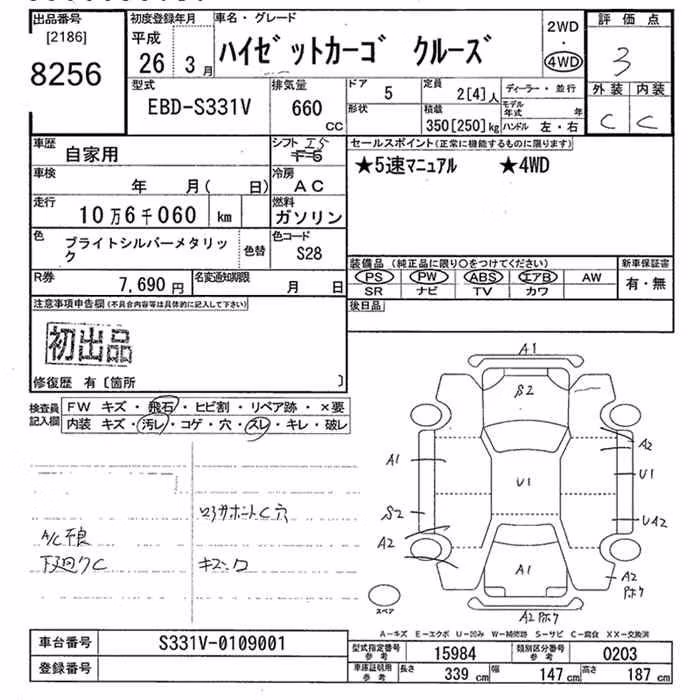 出品番号
[2186]
8256
初度登録年月
平成
26年 3月
車名・グレード
ハイゼットカーゴ クルーズ
2WD
・
4WD
評価点
3
外装 内装
C C
型式
EBD-S331V
排気量
660 CC
ドア 5
形状
定員 2[4]人
積載 350[250]kg
ディーラー・並行
モデル年式 年
ハンドル 左・右
車歴 自家用
シフト F5
車検 年 月( 日)
冷房 AC
走行 10万6千060 km
燃料 ガソリン
色 ブライトシルバーメタリック
色替
色コード S28
R券 7,690円
名変通知期限 月 日
セールスポイント(正常に機能するものに限ります)
★5速マニュアル ★4WD
装備品(純正品に限り○をつけてください)
PS PW ABS エアB AW
SR ナビ TV カワ
新車保証書
有・無
後日品
注意事項申告欄(不具合内容等は具体的に記入して下さい)
初出品
修復歴 有〔箇所 〕
検査員記入欄
FW キズ・飛石・ヒビ割・リペア跡・×要
内装 キズ・汚レ・コゲ・穴・スレ・キレ・破レ
A/C不良
下廻りC
コアサポートC穴
キズ・凹
A1
S2
A2
A1
U1
U1
S2
UA2
A2
A1
A2
アホク
A2アホク
スペア
A-キズ E-エクボ U-凹み W-補修跡 S-サビ C-腐食 XX-交換済
車台番号 S331V-0109001
登録番号
型式指定番号 参考 15984
類別区分番号 参考 0203
車庫証明用 参考 長さ 339cm 幅 147cm 高さ 187cm